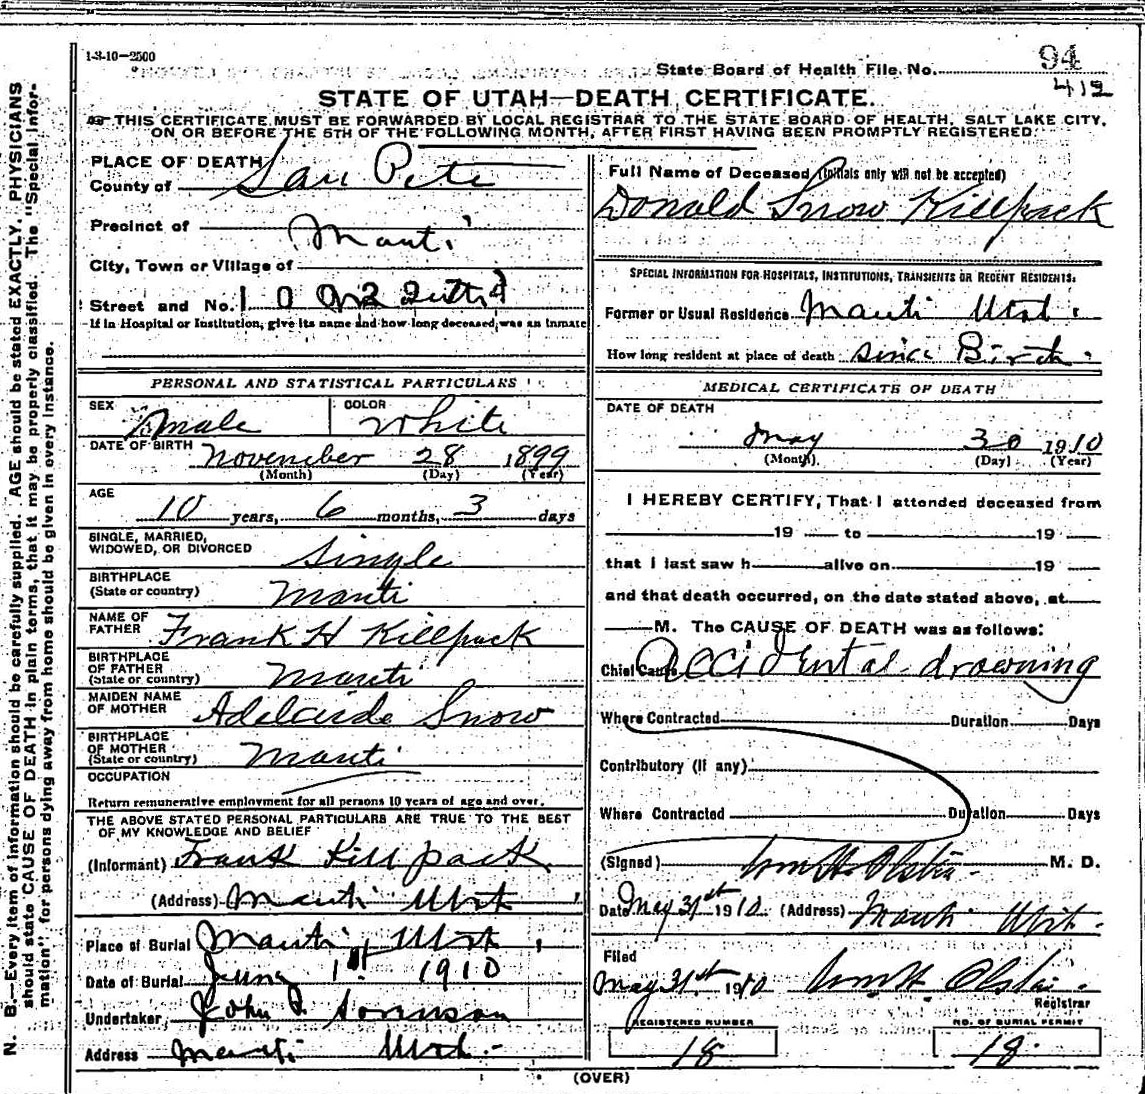 1-3-10-2500
94
State Board of Health File No.
412
STATE OF UTAH—DEATH CERTIFICATE.
THIS CERTIFICATE MUST BE FORWARDED BY LOCAL REGISTRAR TO THE STATE BOARD OF HEALTH, SALT LAKE CITY,
ON OR BEFORE THE 5TH OF THE FOLLOWING MONTH, AFTER FIRST HAVING BEEN PROMPTLY REGISTERED.
N. B.—Every item of information should be carefully supplied. AGE should be stated EXACTLY. PHYSICIANS
should state CAUSE OF DEATH in plain terms, that it may be properly classified. The "Special Infor-
mation" for persons dying away from home should be given in every instance.
PLACE OF DEATH
County of San Pete
Precinct of Manti
City, Town or Village of
Street and No.
If in Hospital or Institution, give its name and how long deceased was an inmate
PERSONAL AND STATISTICAL PARTICULARS
SEX male COLOR white
DATE OF BIRTH November 28 1899
(Month) (Day) (Year)
AGE
10 years, 6 months, 3 days
SINGLE, MARRIED,
WIDOWED, OR DIVORCED Single
BIRTHPLACE
(State or country) Manti
NAME OF
FATHER Frank H Killpack
BIRTHPLACE
OF FATHER
(State or country) Manti
MAIDEN NAME
OF MOTHER Adelaide Snow
BIRTHPLACE
OF MOTHER
(State or country) Manti
OCCUPATION
Return remunerative employment for all persons 10 years of age and over.
THE ABOVE STATED PERSONAL PARTICULARS ARE TRUE TO THE BEST
OF MY KNOWLEDGE AND BELIEF
(Informant) Frank Killpack
(Address) Manti Utah
Place of Burial Manti, Utah
Date of Burial 1st 1910
Undertaker, John Sorenson
Address Manti Utah
Full Name of Deceased (Initials only will not be accepted)
Donald Snow Killpack
SPECIAL INFORMATION FOR HOSPITALS, INSTITUTIONS, TRANSIENTS OR RECENT RESIDENTS.
Former or Usual Residence Manti Utah
How long resident at place of death since Birth
MEDICAL CERTIFICATE OF DEATH
DATE OF DEATH
May 30 1910
(Month) (Day) (Year)
I HEREBY CERTIFY, That I attended deceased from
19 to 19
that I last saw h alive on 19
and that death occurred, on the date stated above, at
M. The CAUSE OF DEATH was as follows:
Chief Cause Accidental drowning
Where Contracted Duration Days
Contributory (if any)
Where Contracted Duration Days
(Signed) Wm H. M. D.
Date May 31st 1910 (Address) Manti Utah
Filed
May 31st 1910 Wm H
Registrar
REGISTERED NUMBER NO. OF BURIAL PERMIT
18 18
(OVER)